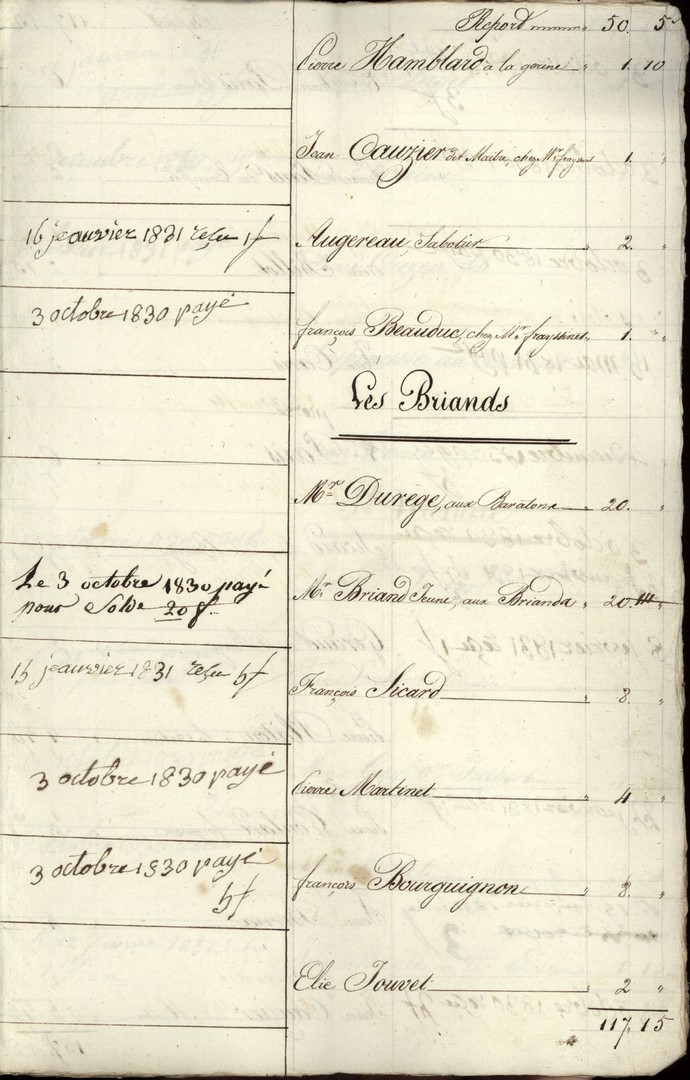 Report 50. 5
Pierre Hamblard à la garine " 1. 10
Jean Cauzier dit Maitre, chez Mr frayssinet 1. "
16 jeauvier 1831 reçu 1f
Augereau, Sabotier " 2. "
3 octobre 1830 payé
françois Beauduc, chez Mr frayssinet " 1. "
Les Briands
Mr Durege, aux Baratons " 20. "
Le 3 octobre 1830 payé
pour Solde 20 f.
Mr Briand Jeune, aux Briands " 20. "
15 jeauvier 1831 reçu 5f
François Sicard " 8. "
3 octobre 1830 payé
Pierre Martinet " 4 "
3 octobre 1830 payé
5f
françois Bourguignon " 8. "
Elie Jouvet " 2 "
117. 15